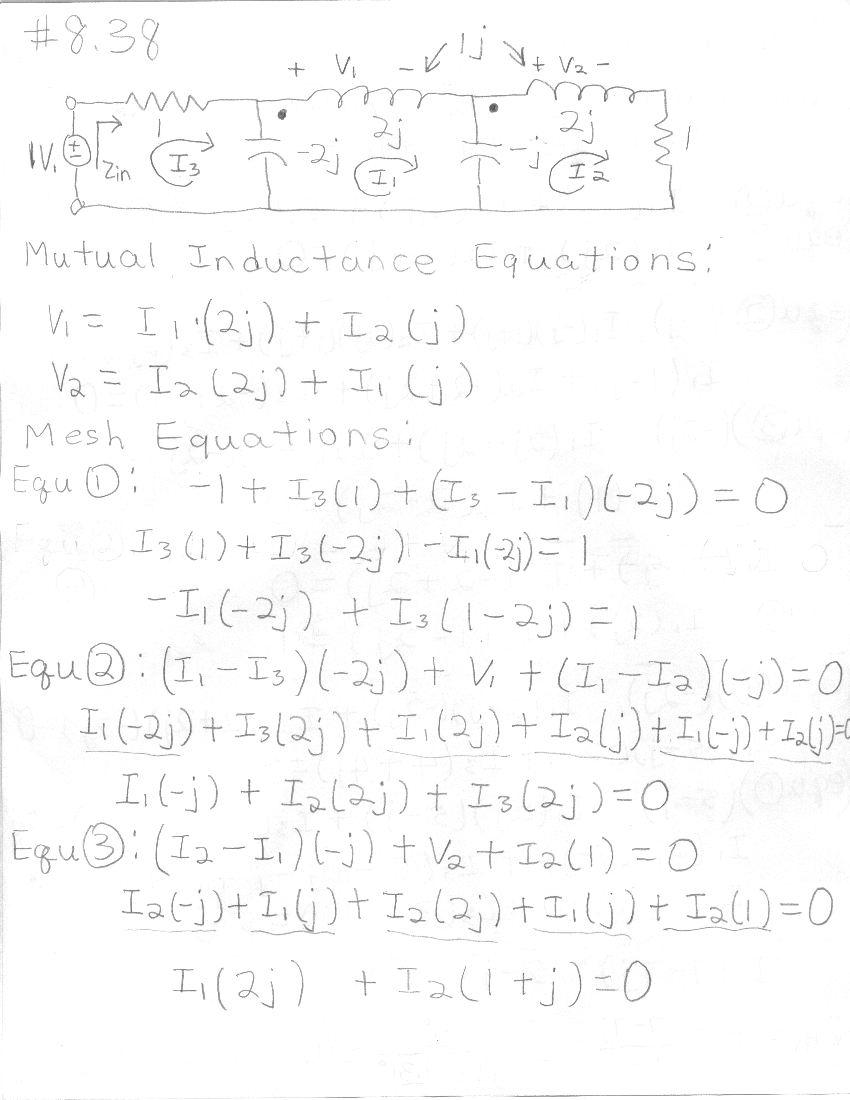 #8.38
+ V₁ - 1j + V₂ -
1V. ± Zin 1 I₃ -2j 2j I₁ -j 2j I₂ 1
Mutual Inductance Equations:
V₁ = I₁·(2j) + I₂(j)
V₂ = I₂(2j) + I₁(j)
Mesh Equations:
Equ①: -1 + I₃(1) + (I₃ - I₁)(-2j) = 0
I₃(1) + I₃(-2j) - I₁(-2j) = 1
-I₁(-2j) + I₃(1-2j) = 1
Equ②: (I₁ - I₃)(-2j) + V₁ + (I₁ - I₂)(-j) = 0
I₁(-2j) + I₃(2j) + I₁(2j) + I₂(j) + I₁(-j) + I₂(j) = 0
I₁(-j) + I₂(2j) + I₃(2j) = 0
Equ③: (I₂ - I₁)(-j) + V₂ + I₂(1) = 0
I₂(-j) + I₁(j) + I₂(2j) + I₁(j) + I₂(1) = 0
I₁(2j) + I₂(1+j) = 0